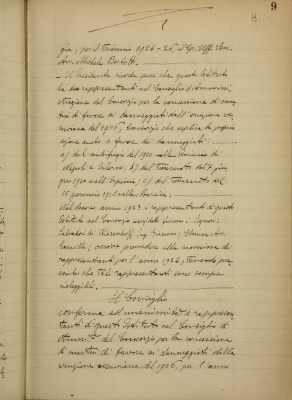 9
gia, per il triennio 1924-26, il Gr. Uff. Sen.
Avv. Michele
- Il Presidente ricorda pure che questo Istituto
ha due rappresentanti nel Consiglio di Ammini-
strazione del Consorzio per la concessione di mu-
tui di favore ai danneggiati dall'eruzione ve-
suviana del 1906, Consorzio che esplica la propria
azione anche a favore dei danneggiati:
a) dal nubifragio del 1910 nelle Provincie di
Napoli e Salerno; b) dal terremoto del 7 giu-
gno 1910 nell'Irpinia; c) dal terremoto del
13 gennaio 1915 nella
Nel decorso anno 1923 i rappresentanti di questo
Istituto nel Consorzio furono i Signori:
Salvatori di Cav. Giacomo;
occorre provvedere alla nomina dei
rappresentanti per l'anno 1924, tenendo pre-
sente che tali rappresentanti sono sempre
rieleggibili.
Il Consiglio
conferma ad unanimità a rappresen-
tanti di questo Istituto nel Consiglio di
Amm. del Consorzio per la concessione
di mutui di favore ai danneggiati dalla
eruzione vesuviana del 1906, per l'anno